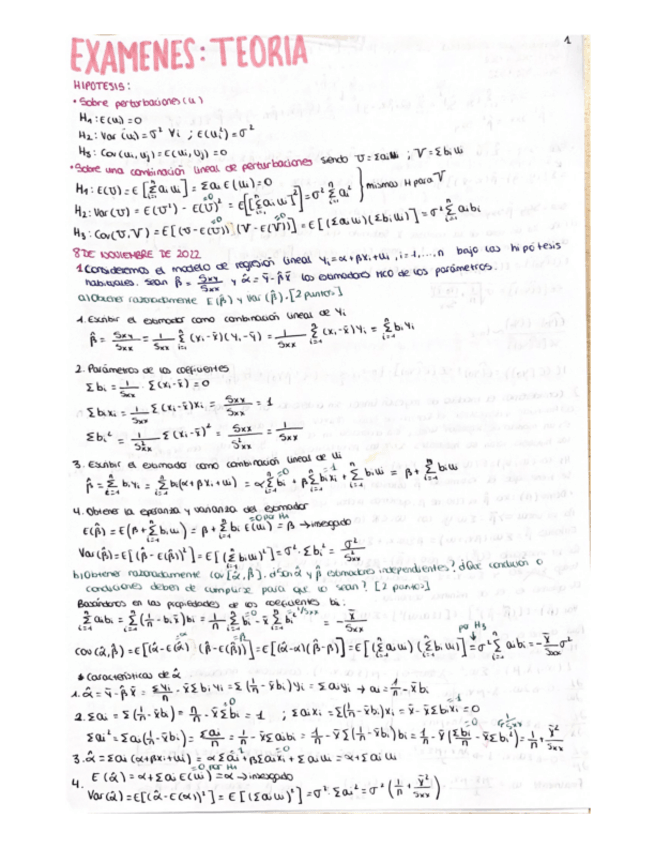 1
EXAMENES: TEORIA
HIPÓTESIS:
• Sobre perturbaciones (u)
H₁: E(uᵢ) = 0
H₂: Var (uᵢ) = σ² ∀i ; E(uᵢ²) = σ²
H₃: Cov(uᵢ, uⱼ) = E(uᵢ, uⱼ) = 0
• Sobre una combinación lineal de perturbaciones siendo U = Σaᵢuᵢ ; V = Σbᵢuᵢ
H₁: E(U) = E[Σaᵢuᵢ] = Σaᵢ E(uᵢ) = 0
H₂: Var(U) = E(U²) - E(U)² = E[[Σaᵢuᵢ]²] = σ² Σaᵢ² } mismas H para V
H₃: Cov(U,V) = E[(U-E(U)) (V-E(V))] = E[(Σaᵢuᵢ)(Σbᵢuᵢ)] = σ² Σaᵢbᵢ
8 DE NOVIEMBRE DE 2022
1. Consideremos el modelo de regresión lineal yᵢ = α+βxᵢ+uᵢ, i=1,...,n bajo las hipótesis
habituales. Sean β̂ = Sxy/Sxx y α̂ = ȳ-β̂x̄ los estimadores MCO de los parámetros.
a) Obtener razonadamente E(β̂) y Var(β̂). [2 puntos]
1. Escribir el estimador como combinación lineal de Yi
β̂ = Sxy/Sxx = 1/Sxx Σ(xᵢ-x̄)(yᵢ-ȳ) = 1/Sxx Σ(xᵢ-x̄)yᵢ = Σbᵢyᵢ
2. Parámetros de los coeficientes
Σbᵢ = 1/Sxx · Σ(xᵢ-x̄) = 0
Σbᵢxᵢ = 1/Sxx Σ(xᵢ-x̄)xᵢ = Sxx/Sxx = 1
Σbᵢ² = 1/S²xx Σ(xᵢ-x̄)² = Sxx/S²xx = 1/Sxx
3. Escribir el estimador como combinación lineal de Ui
β̂ = Σbᵢyᵢ = Σbᵢ(α+βxᵢ+uᵢ) = αΣbᵢ + βΣbᵢxᵢ + Σbᵢuᵢ = β + Σbᵢuᵢ
4. Obtener la esperanza y varianza del estimador
E(β̂) = E(β+Σbᵢuᵢ) = β+Σbᵢ E(uᵢ) = β → insesgado
Var(β̂) = E[(β̂-E(β̂))²] = E[(Σbᵢuᵢ)²] = σ²·Σbᵢ² = σ²/Sxx
b) Obtener razonadamente Cov[α̂,β̂]. ¿Son α̂ y β̂ estimadores independientes? ¿Qué condición o
condiciones deben de cumplirse para que lo sean? [2 puntos]
Basándonos en las propiedades de los coeficientes bi:
Σaᵢbᵢ = Σ(1/n - bᵢx̄)bᵢ = 1/n Σbᵢ - x̄Σbᵢ² = -x̄/Sxx
por H₃
Cov(α̂,β̂) = E[(α̂-E(α̂)) (β̂-E(β̂))] = E[(α̂-α)(β̂-β)] = E[(Σaᵢuᵢ)(Σbᵢuᵢ)] = σ²Σaᵢbᵢ = -x̄/Sxx σ²
Características de α̂
1. α̂ = ȳ-β̂x̄ = Σyᵢ/n - x̄Σbᵢyᵢ = Σ(1/n - x̄bᵢ)yᵢ = Σaᵢyᵢ → aᵢ = 1/n - x̄bᵢ
2. Σaᵢ = Σ(1/n - x̄bᵢ) = n/n - x̄Σbᵢ = 1 ; Σaᵢxᵢ = Σ(1/n - x̄bᵢ)xᵢ = x̄-x̄Σbᵢxᵢ = 0
Σaᵢ² = Σaᵢ(1/n - x̄bᵢ) = Σaᵢ/n - x̄Σaᵢbᵢ = 1/n - x̄Σ(1/n - x̄bᵢ)bᵢ = 1/n - x̄(Σbᵢ/n - x̄Σbᵢ²) = 1/n + x̄²/Sxx
3. α̂ = Σaᵢ(α+βxᵢ+uᵢ) = αΣaᵢ + βΣaᵢxᵢ + Σaᵢuᵢ = α+Σaᵢuᵢ
4. E(α̂) = α+Σaᵢ E(uᵢ) = α → insesgado
Var(α̂) = E[(α̂-E(α̂))²] = E[(Σaᵢuᵢ)²] = σ²·Σaᵢ² = σ²(1/n + x̄²/Sxx)